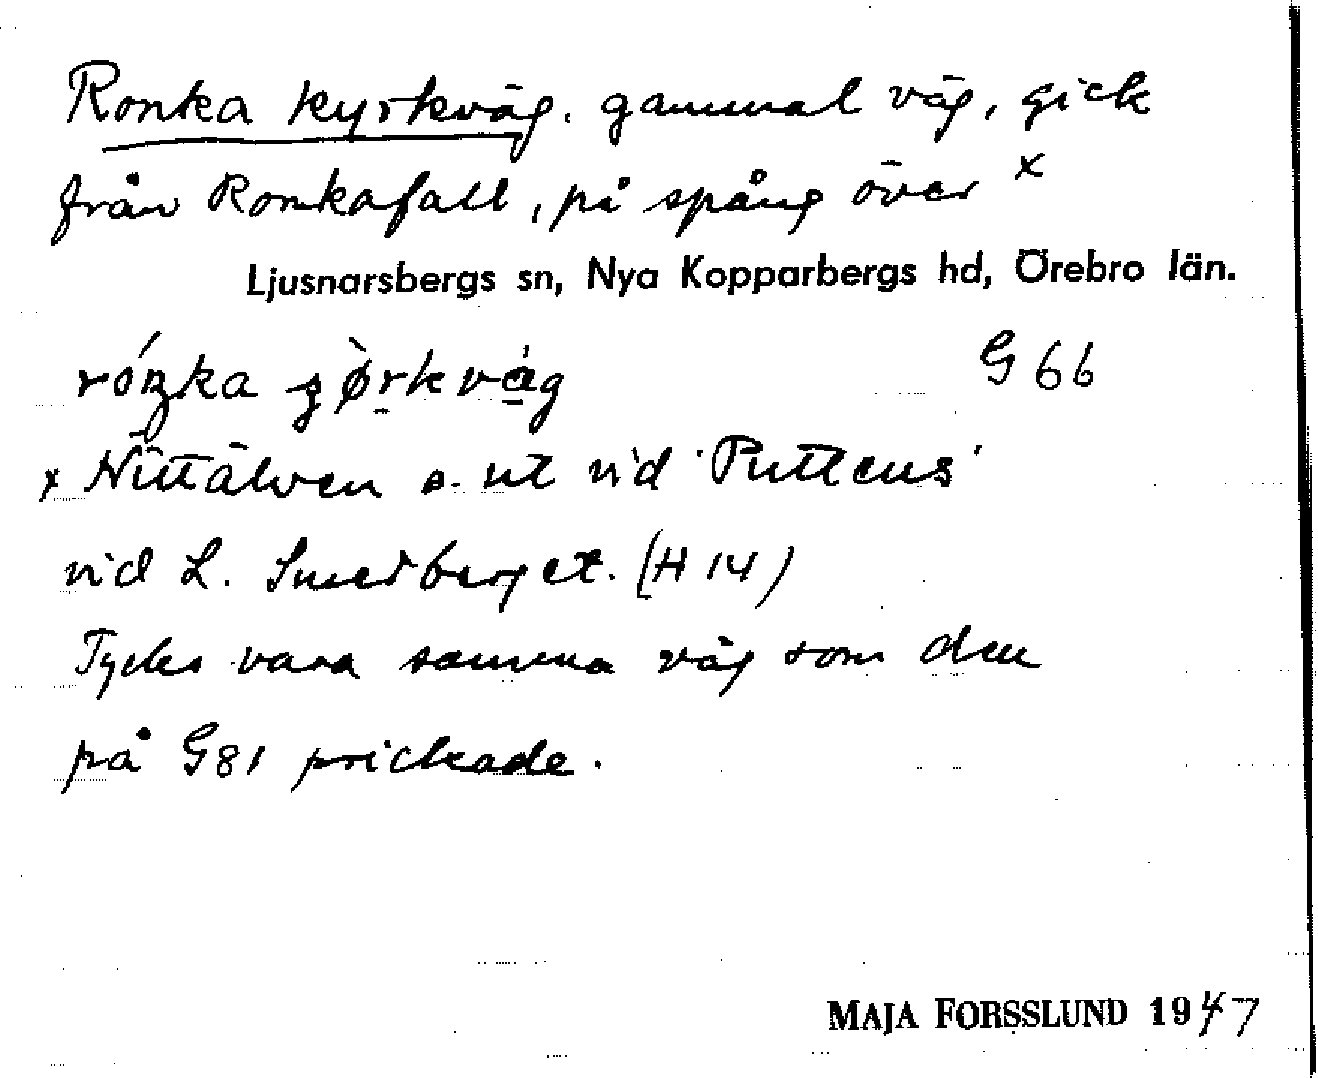 Ronka kyrkväg. gammal väg, gick
från Ronkafall, på spång över x
Ljusnarsbergs sn, Nya Kopparbergs hd, Örebro län.
G 66
x Nittälven o. ut vid 'Puttens'
vid L. Smedberget. (H 14)
Tycks vara samma väg som den
på G81 prickade.
MAJA FORSSLUND 1947